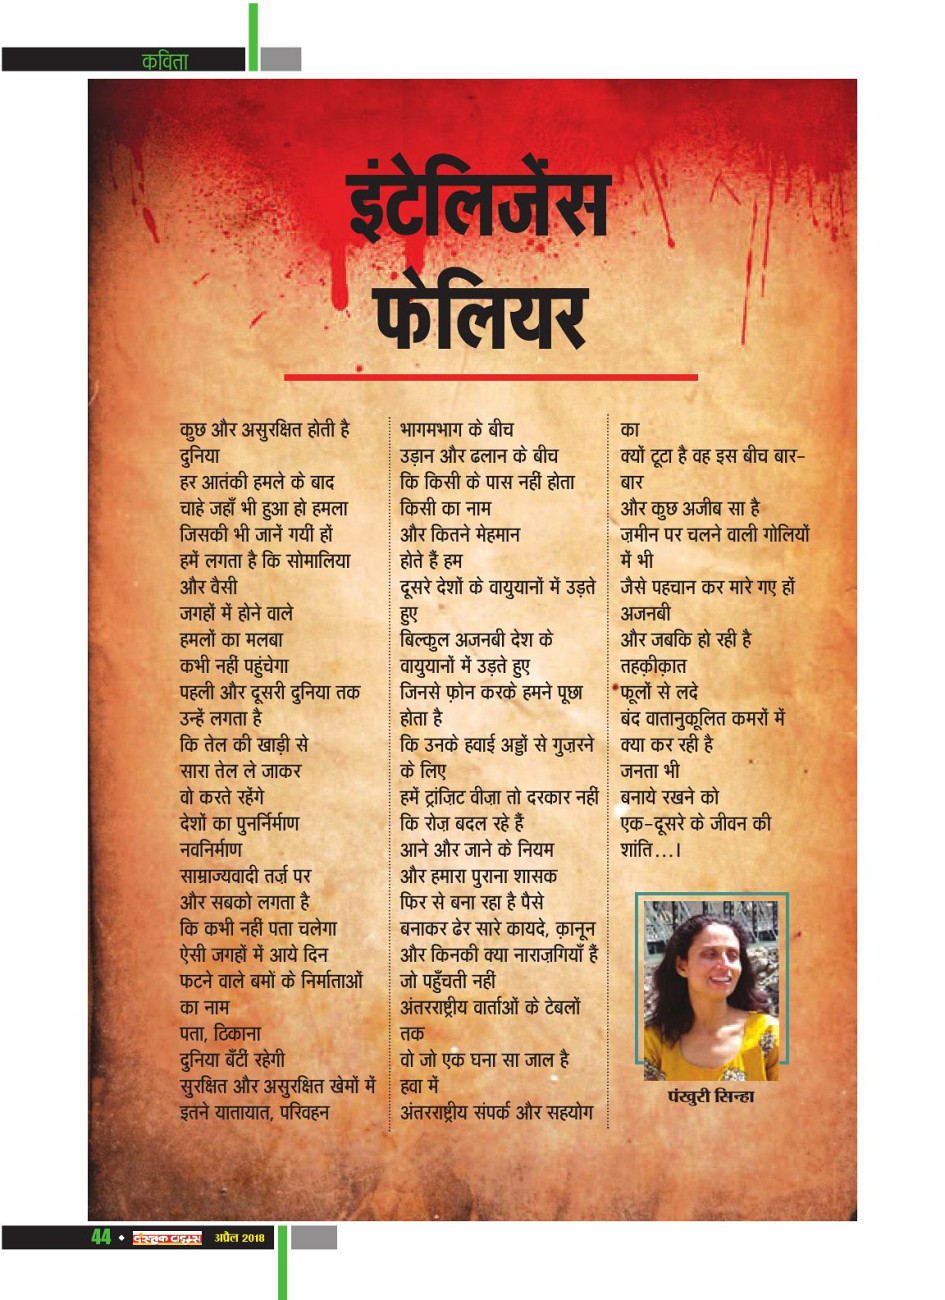 कविता
इंटेलिजेंस
फेलियर
कुछ और असुरक्षित होती है
दुनिया
हर आतंकी हमले के बाद
चाहे जहाँ भी हुआ हो हमला
जिसकी भी जानें गयीं हों
हमें लगता है कि सोमालिया
और वैसी
जगहों में होने वाले
हमलों का मलबा
कभी नहीं पहुंचेगा
पहली और दूसरी दुनिया तक
उन्हें लगता है
कि तेल की खाड़ी से
सारा तेल ले जाकर
वो करते रहेंगे
देशों का पुनर्निर्माण
नवनिर्माण
साम्राज्यवादी तर्ज़ पर
और सबको लगता है
कि कभी नहीं पता चलेगा
ऐसी जगहों में आये दिन
फटने वाले बमों के निर्माताओं
का नाम
पता, ठिकाना
दुनिया बँटी रहेगी
सुरक्षित और असुरक्षित खेमों में
इतने यातायात, परिवहन
भागमभाग के बीच
उड़ान और ढलान के बीच
कि किसी के पास नहीं होता
किसी का नाम
और कितने मेहमान
होते हैं हम
दूसरे देशों के वायुयानों में उड़ते
हुए
बिल्कुल अजनबी देश के
वायुयानों में उड़ते हुए
जिनसे फ़ोन करके हमने पूछा
होता है
कि उनके हवाई अड्डों से गुज़रने
के लिए
हमें ट्रांज़िट वीज़ा तो दरकार नहीं
कि रोज़ बदल रहे हैं
आने और जाने के नियम
और हमारा पुराना शासक
फिर से बना रहा है पैसे
बनाकर ढेर सारे कायदे, क़ानून
और किनकी क्या नाराज़गियाँ हैं
जो पहुँचती नहीं
अंतरराष्ट्रीय वार्ताओं के टेबलों
तक
वो जो एक घना सा जाल है
हवा में
अंतरराष्ट्रीय संपर्क और सहयोग
का
क्यों टूटा है वह इस बीच बार-
बार
और कुछ अजीब सा है
ज़मीन पर चलने वाली गोलियों
में भी
जैसे पहचान कर मारे गए हों
अजनबी
और जबकि हो रही है
तहक़ीक़ात
फूलों से लदे
बंद वातानुकूलित कमरों में
क्या कर रही है
जनता भी
बनाये रखने को
एक-दूसरे के जीवन की
शांति...।
पंखुरी सिन्हा
44 • टाइम्स अप्रैल 2018